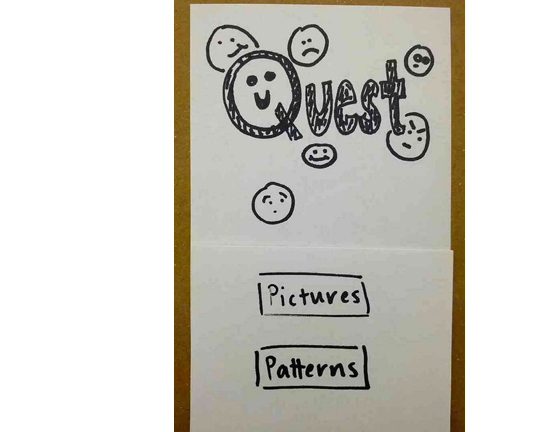 Quest
Pictures
Patterns